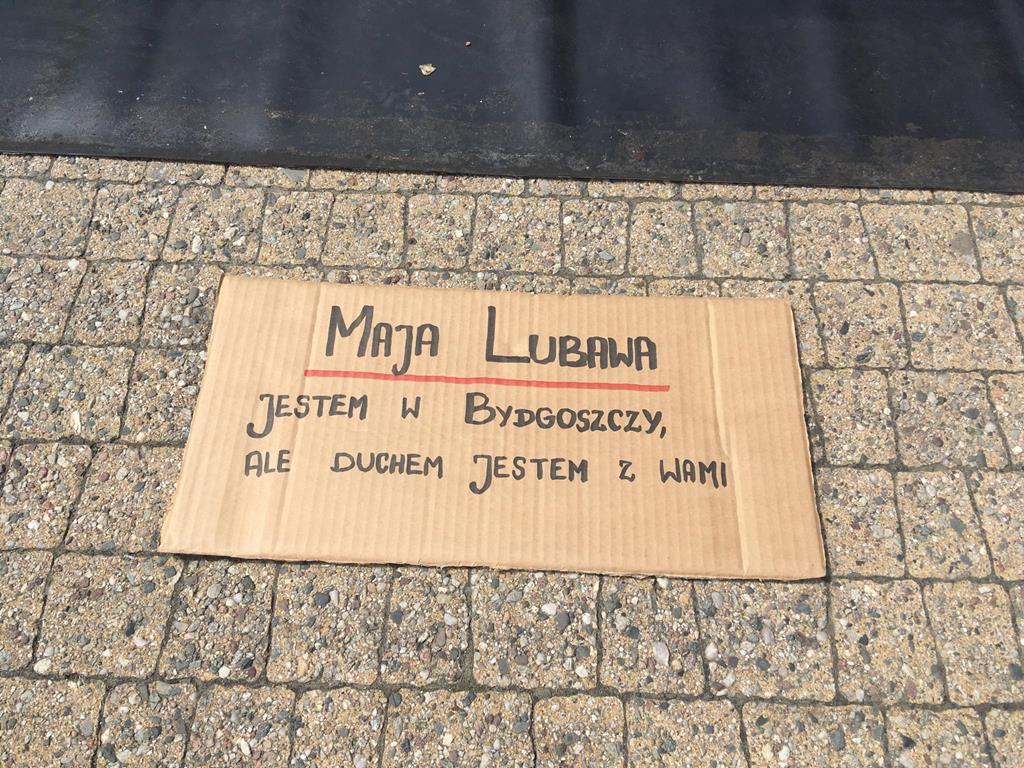 Maja Lubawa
jestem w Bydgoszczy,
ale duchem jestem z wami